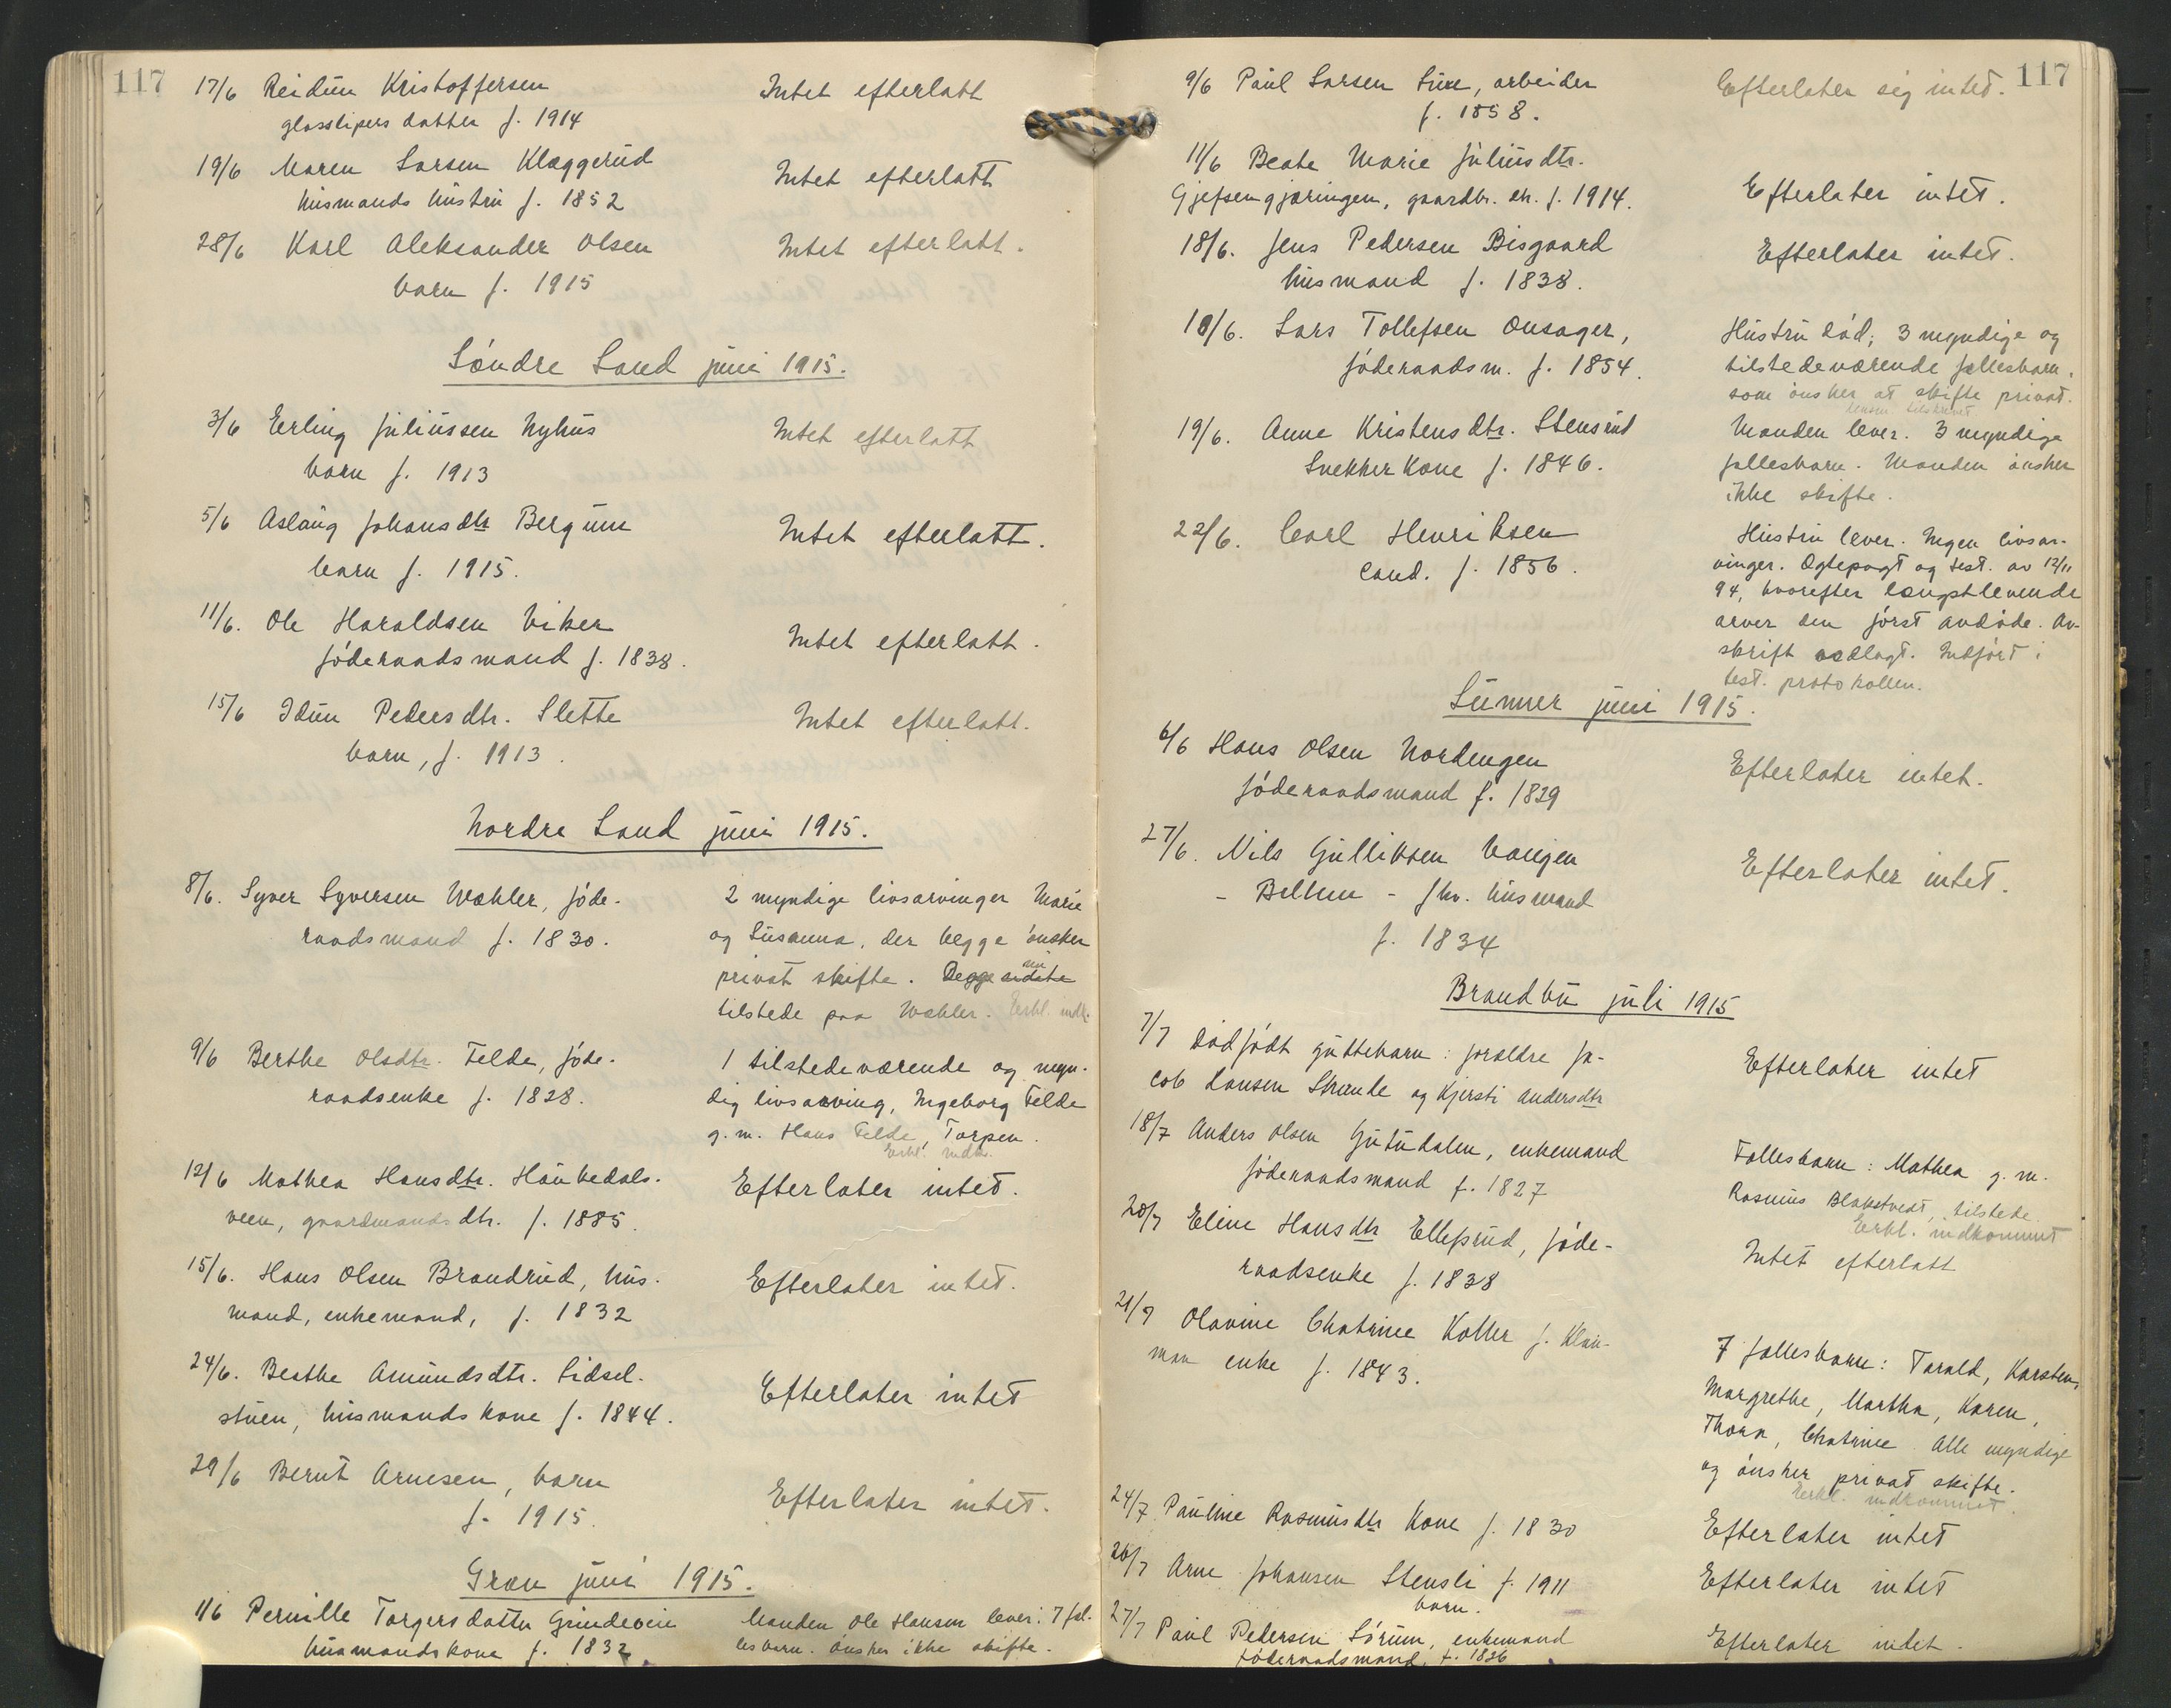 117
17/6 Reidun Kristoffersen Intet efterlatt
glasslipers datter f. 1914
19/6 Maren Larsen Klæggerud Intet efterlatt
husmands hustru f. 1852
28/6 Karl Aleksander Olsen Intet efterlatt.
barn f. 1915
Söndre Land juni 1915.
3/6 Erling Juliussen Nyhus Intet efterlatt
barn f. 1913
5/6 Aslaug Johansdtr Bergum Intet efterlatt.
barn f. 1915.
11/6. Ole Haraldsen Viker Intet efterlatt.
föderaadsmand f. 1838.
15/6 Idun Pedersdtr. Slette Intet efterlatt.
barn, f. 1913.
Nordre Land juni 1915.
8/6. Syver Syversen Wøhler, föde- 2 myndige livsarvinger Marie
raadsmand f. 1830. og Susanna, der begge önsker
privat skifte. Begge
tilstede paa Wøhler. Erkl. indk.
9/6 Berthe Olsdtr. Felde, föde- 1 tilstedeværende og myn-
raadsenke f. 1828. dig livsarving, Ingeborg Felde
g.m. Hans Felde, Torpen.
Erkl. indk.
12/6 Mathea Hansdtr. Haukedals- Efterlater intet.
veen, gaardmandsdtr. f. 1885.
15/6. Hans Olsen Brandrud, hus- Efterlater intet.
mand, enkemand, f. 1832
24/6. Berthe Amundsdtr. Sidsel- Efterlater intet
stuen, husmandskone f. 1844.
29/6 Bernt Arnesen, barn Efterlater intet.
f. 1915.
Gran juni 1915.
1/6 Pernille Torgersdatter Grindeveie Manden Ole Hansen lever. 7 fæl-
husmandskone f. 1832 lesbarn. Önsker ikke skifte.
117
9/6 Paul Larsen, arbeider Efterlater sig intet.
f. 1858.
11/6 Beate Marie Juliusdtr.
Gjefsengjæringen, gaardbr. dtr. f. 1914. Efterlater intet.
18/6. Jens Pedersen Bisgaard Efterlater intet.
husmand f. 1838.
18/6. Lars Tollefsen Onsager, Hustru död; 3 myndige og
föderaadsm. f. 1854. tilstedeværende fællesbarn,
som önsker at skifte privat.
19/6. Anne Kristensdtr. Stensrud Manden lever. 3 myndige
Snekkerkone f. 1846. fællesbarn. Manden önsker
ikke skifte.
22/6. Carl Henriksen Hustru lever. Ingen livsar-
cand. f. 1856. vinger. Ægtepagt og test. av 12/11
94, hvorefter længstlevende
arver den först avdöde. Av-
skrift vedlagt. Indfört i
test. protokollen.
Lunner juni 1915.
6/6 Hans Olsen Nordengen Efterlater intet.
föderaadsmand f. 1829
27/6. Nils Gulliksen Vangen Efterlater intet.
- Bellum - fhv. husmand
f. 1834
Brandbu juli 1915
7/7 Dödfödt guttebarn: forældre Ja- Efterlater intet
cob Hansen Strande og Kjersti Andersdtr
18/7 Anders Olsen Gutudalen, enkemand Fællesbarn: Mathea g.m.
föderaadsmand f. 1827 Rasmus Blakstvedt, tilstede
Erkl. indkommet
20/7 Eline Hansdtr Ellefsrud, föde- Intet efterlatt
raadsenke f. 1838
21/7 Olavine Chatrine Koller f. Klau-
man enke f. 1843. 7 fællesbarn: Tarald, Karsten,
Margrethe, Martha, Karen,
Thora, Chatrine. Alle myndige
og önsker privat skifte.
Erkl. indkommet
24/7 Pauline Rasmusdtr Kone f. 1830 Efterlater intet
26/7 Arne Johansen Stensli f. 1911 Efterlater intet
barn.
27/7 Paul Pedersen Sörum, enkemand Efterlater intet.
föderaadsmand, f. 1826